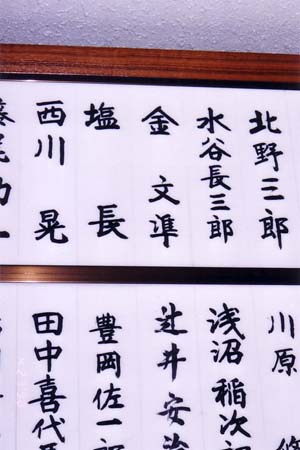 北野三郎
水谷長三郎
金文準
塩長
西川晃
尾
一
川原
浅沼稲次郎
辻井安治
豊岡佐一郎
田中喜代